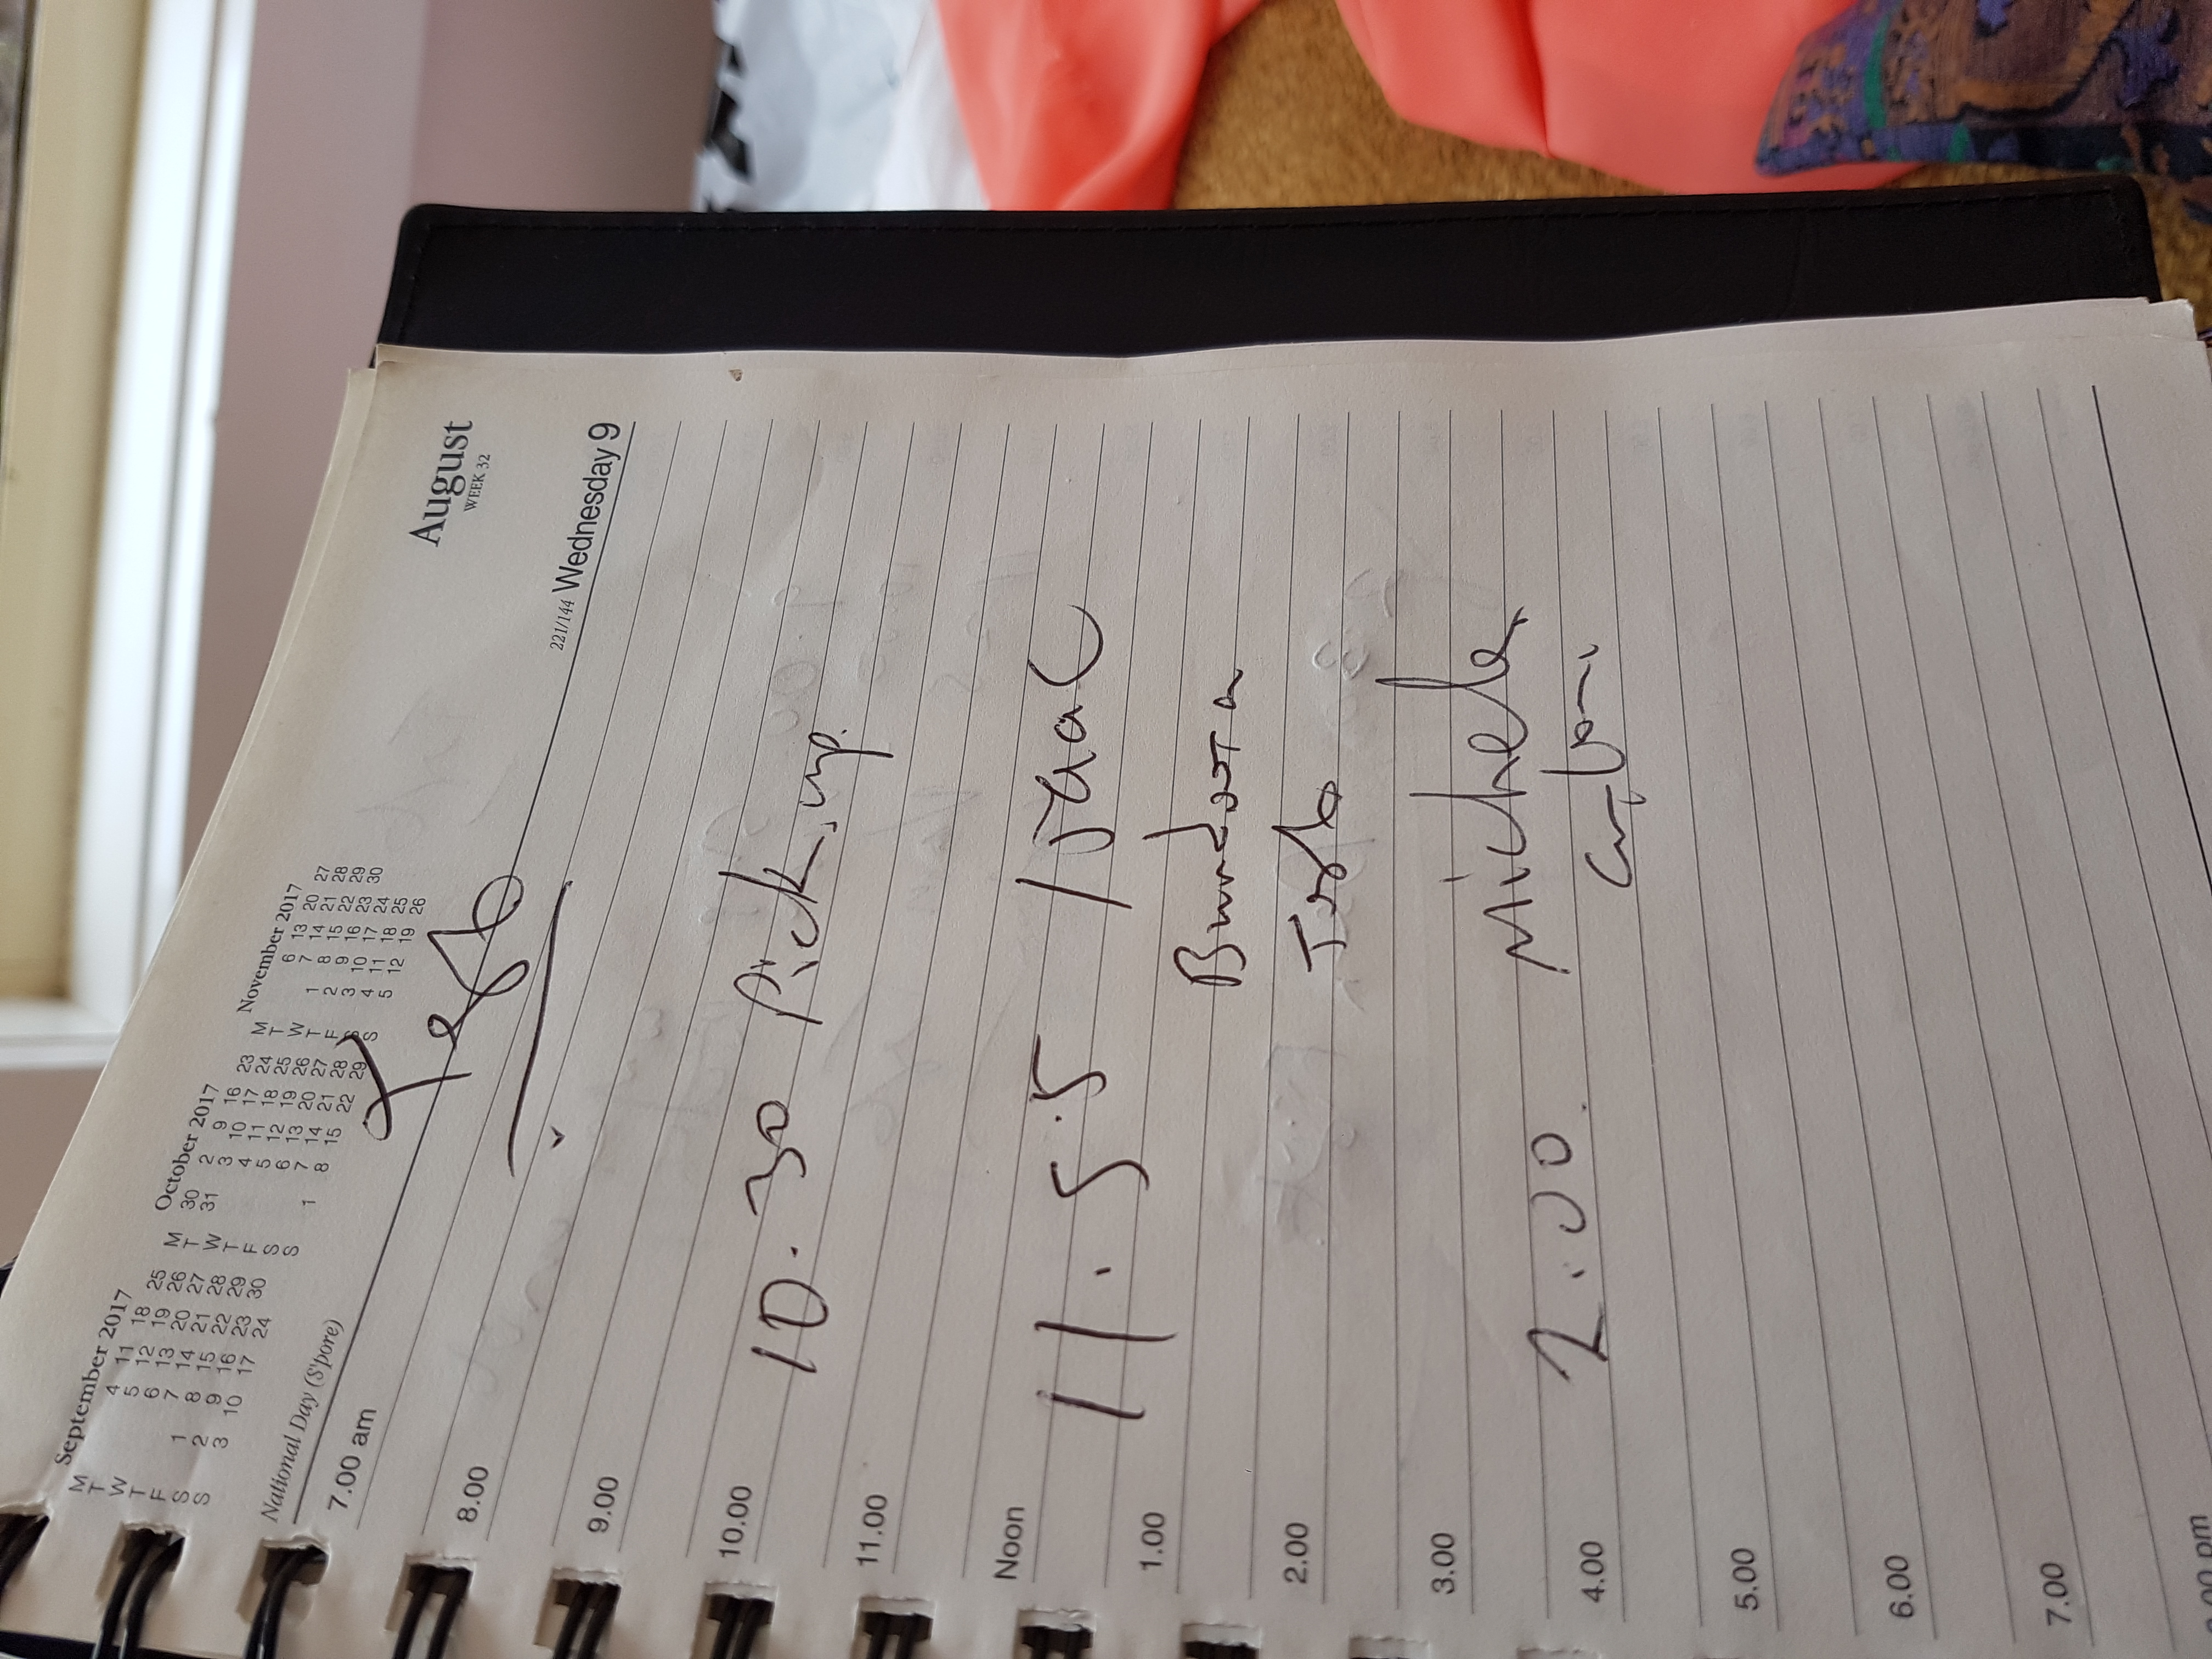 August
WEEK 32
September 2017
M 4 11 18 25
T 5 12 19 26
W 6 13 20 27
T 7 14 21 28
F 1 8 15 22 29
S 2 9 16 23 30
S 3 10 17 24
October 2017
M 30 2 9 16 23
T 31 3 10 17 24
W 4 11 18 25
T 5 12 19 26
F 6 13 20 27
S 7 14 21 28
S 1 8 15 22 29
November 2017
M 6 13 20 27
T 7 14 21 28
W 1 8 15 22 29
T 2 9 16 23 30
F 3 10 17 24
S 4 11 18 25
S 5 12 19 26
National Day (S'pore)
221/144 Wednesday 9
7.00 am
8.00
9.00
10.00
10.30 Pick up.
11.00
Noon
11.55 Isaac
1.00
Bundoora
2.00
3.00
Michele
4.00
2.00.
5.00
6.00
7.00